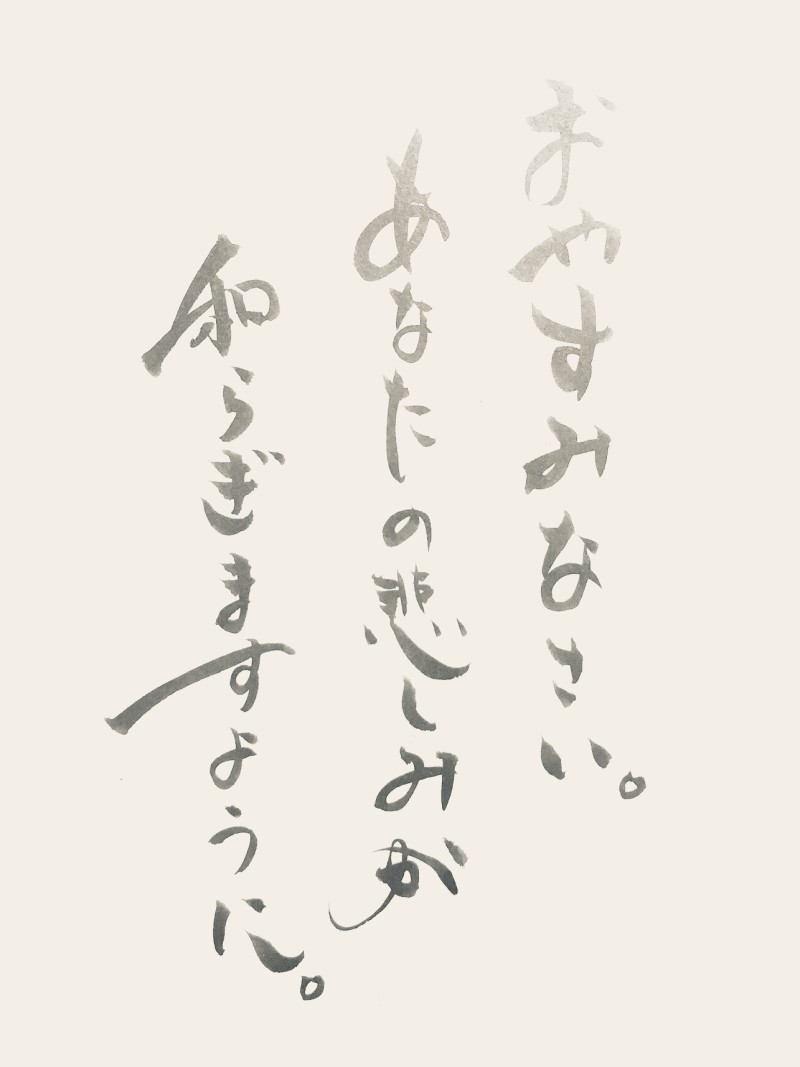 おやすみなさい。
あなたの悲しみが
和らぎますように。